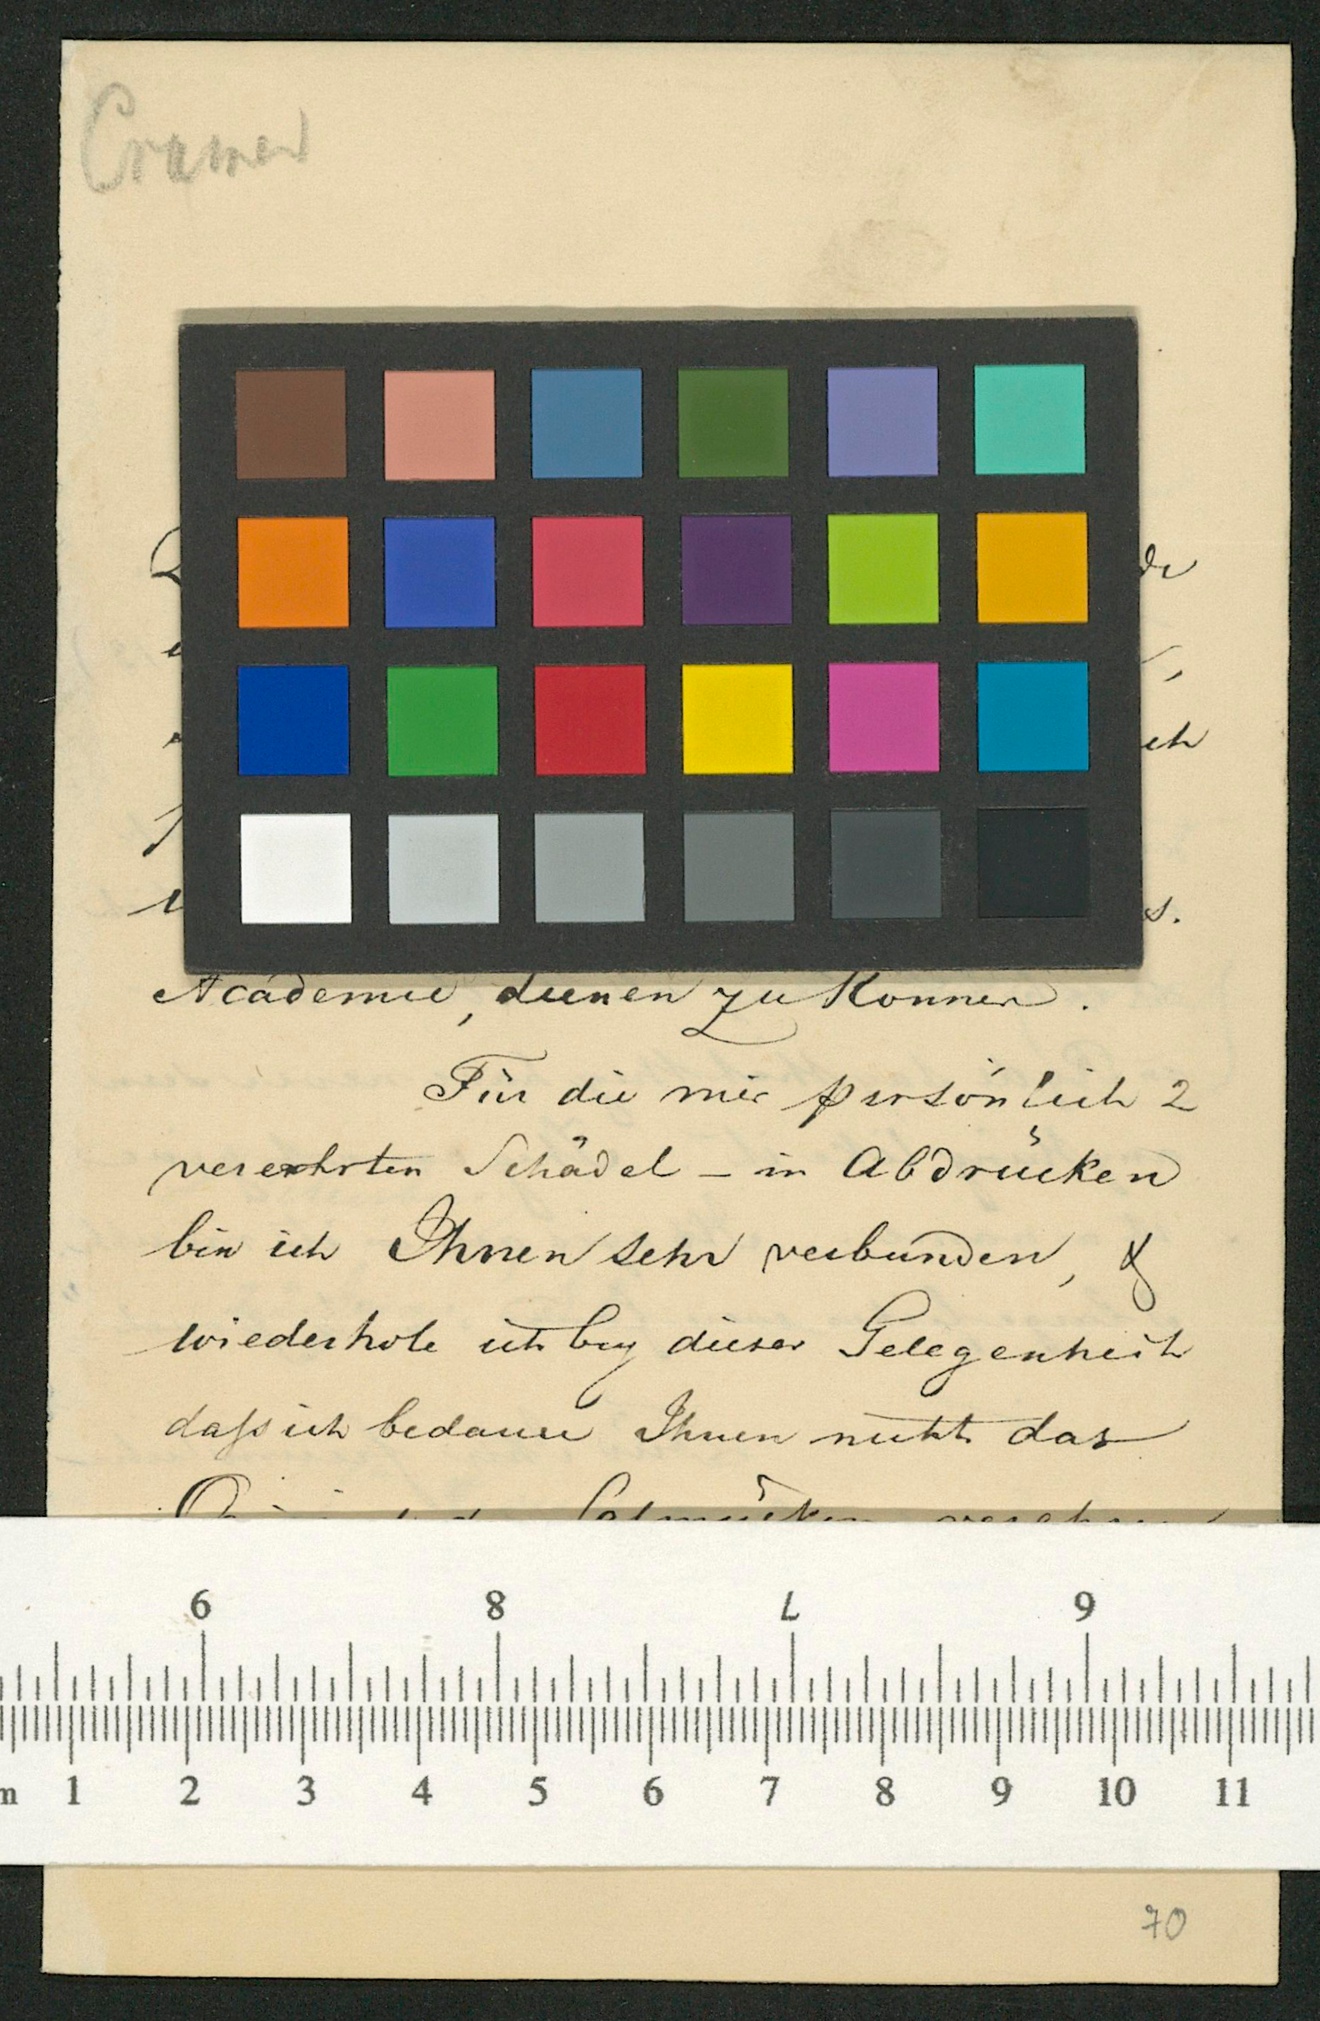 Cramer
de
ich
s.
Academie, dienen zu können.
Für die mir persönlich 2
verehrten Schädel – in Abdrücken
bin ich Ihnen sehr verbunden, &
wiederhole ich bey dieser Gelegenheit
daß ich bedaure Ihnen nicht das
Calmücken verehren
6 8 7 9
m 1 2 3 4 5 6 7 8 9 10 11
70